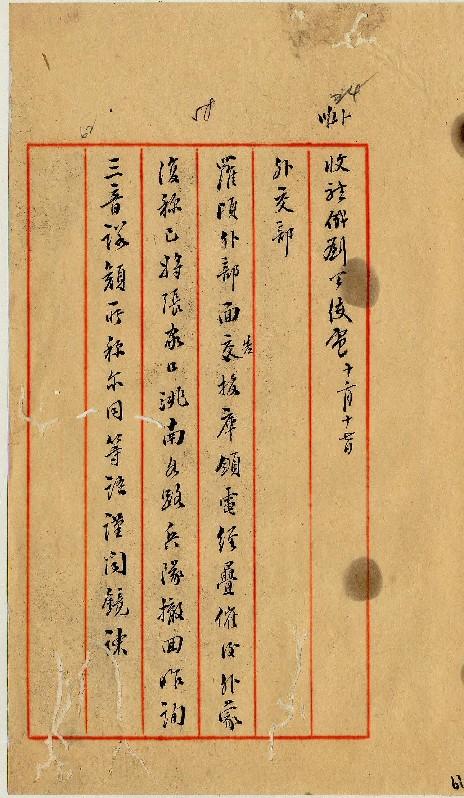 24
58
收駐俄劉公使電
外交部
頃外部面交告據庫領電經疊催促外蒙
復稱已將張家口洮南各路兵隊撤回昨詢
三音諾顏所稱亦同等語謹聞鏡